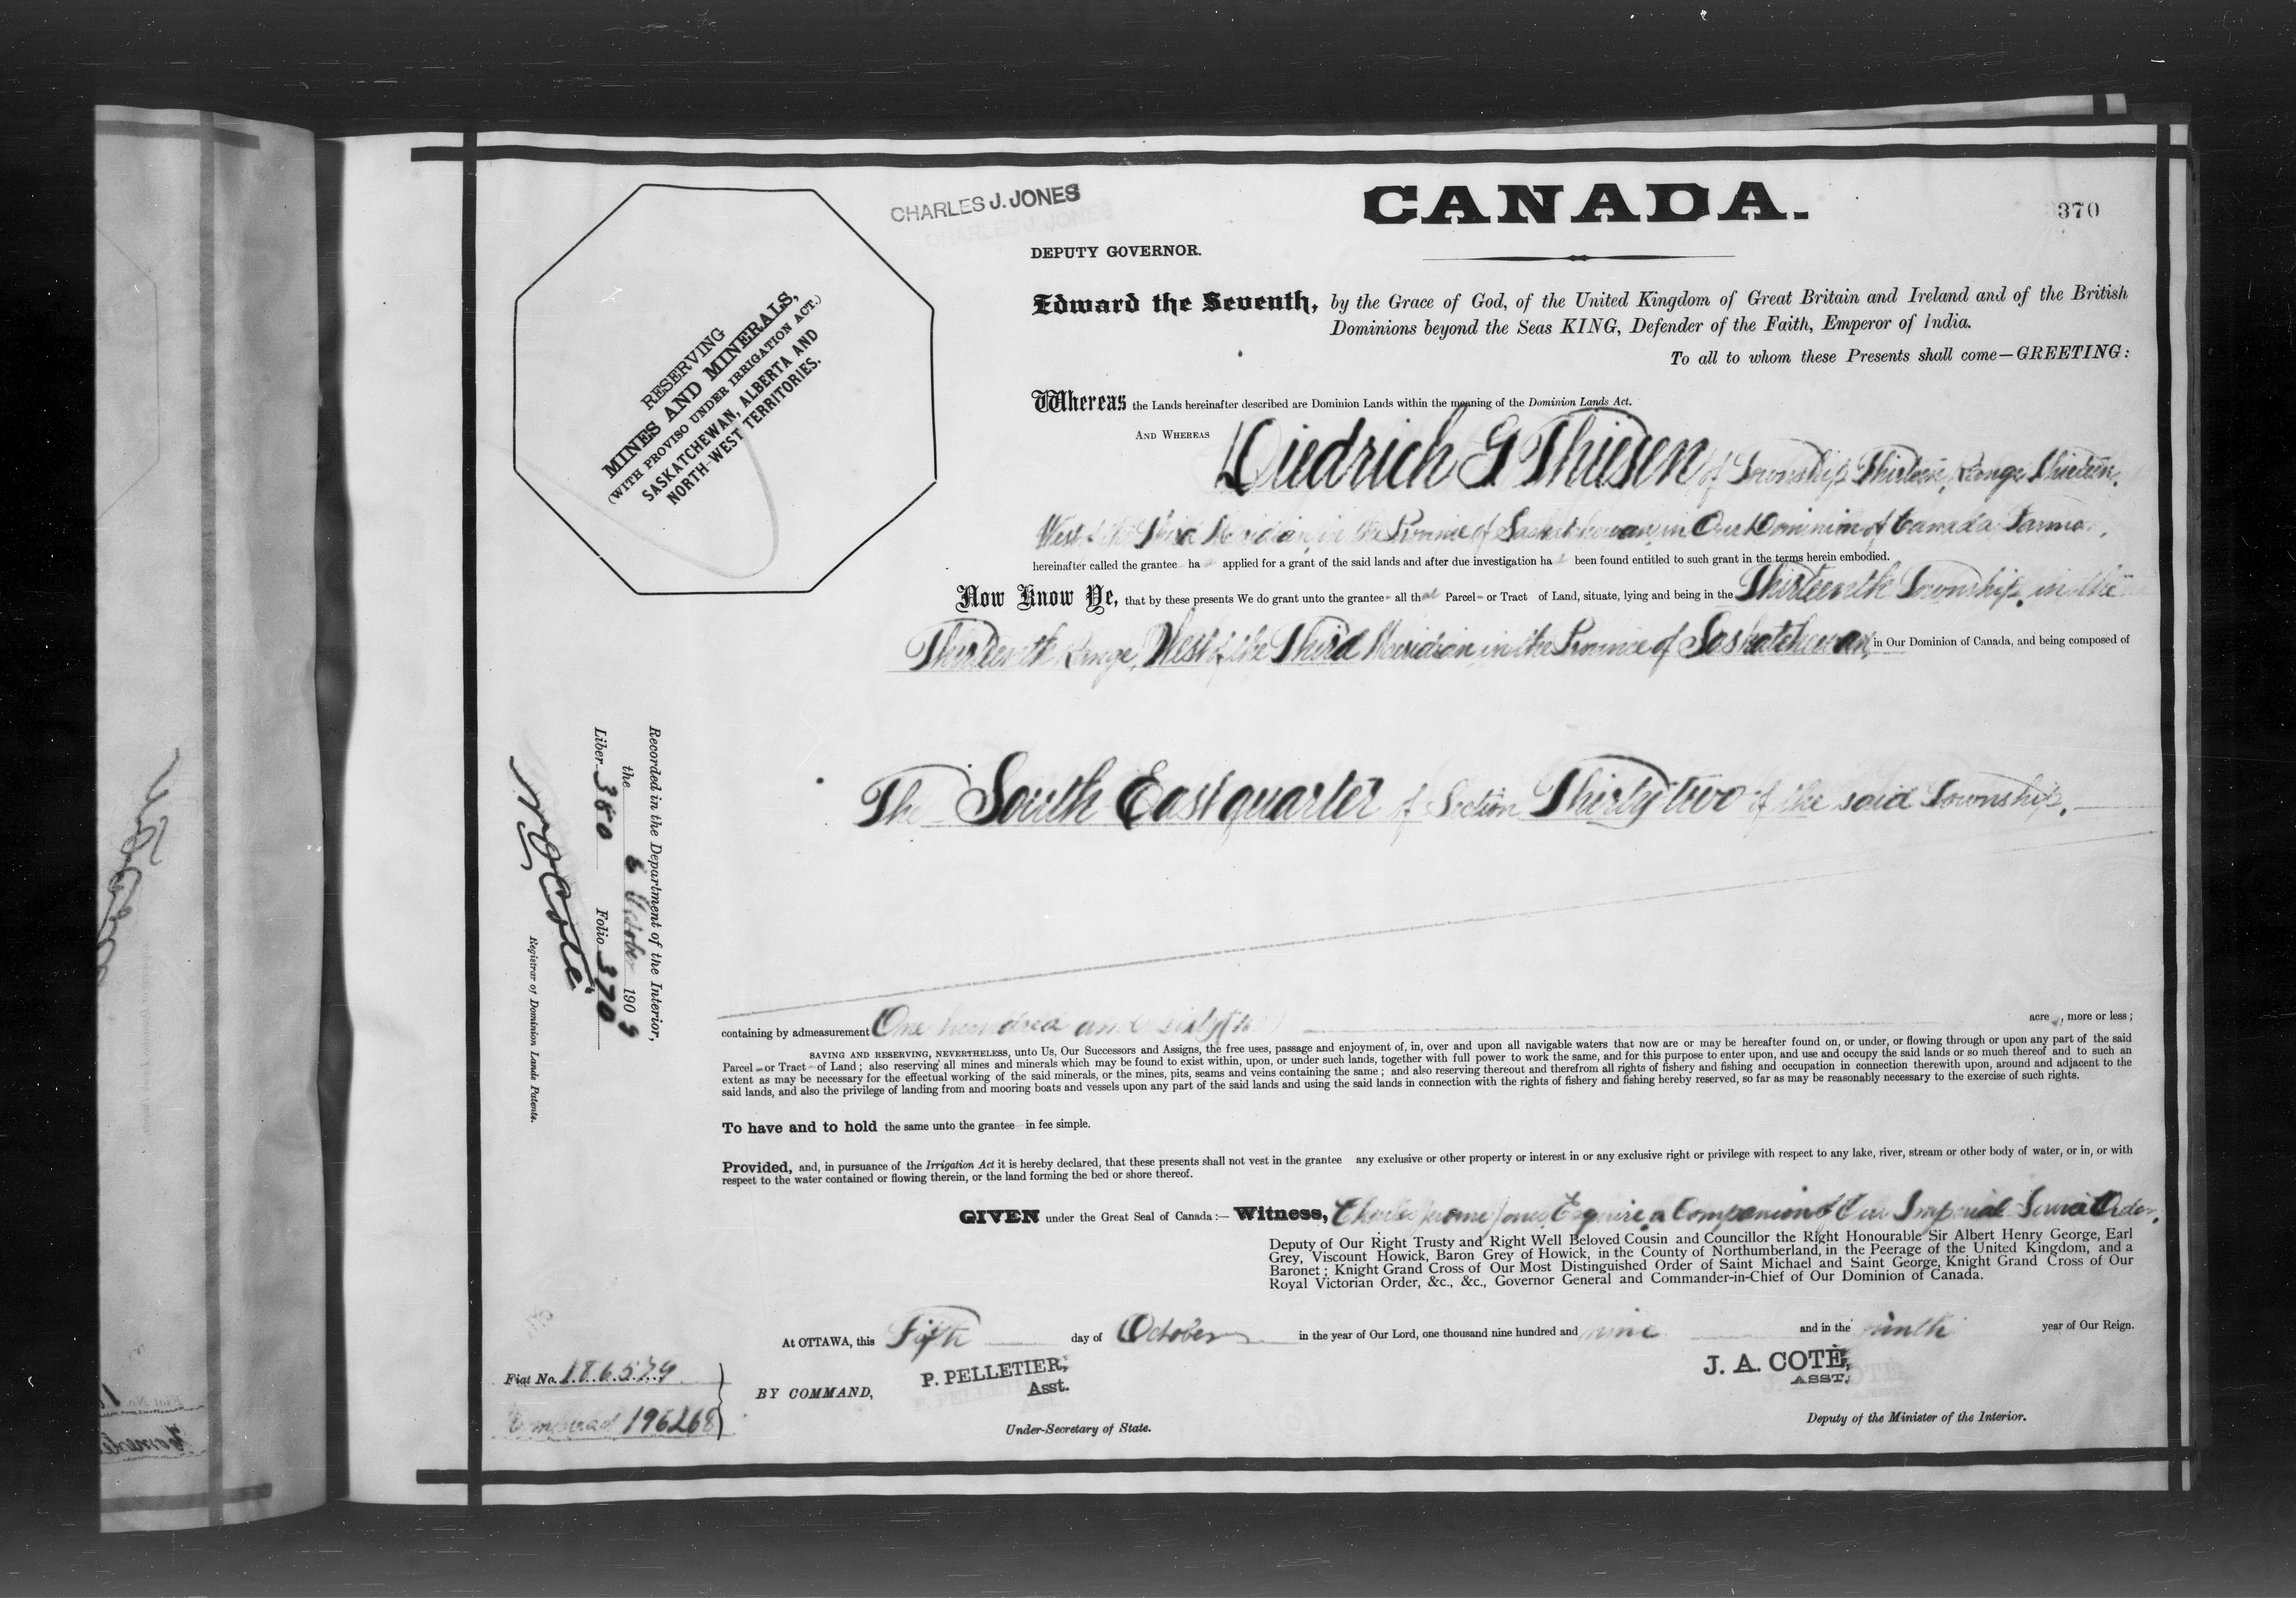 CHARLES J. JONES
CANADA.
370
DEPUTY GOVERNOR.
RESERVING
MINES AND MINERALS,
(WITH PROVISO UNDER IRRIGATION ACT.)
SASKATCHEWAN, ALBERTA AND
NORTH-WEST TERRITORIES.
Edward the Seventh, by the Grace of God, of the United Kingdom of Great Britain and Ireland and of the British
Dominions beyond the Seas KING, Defender of the Faith, Emperor of India.
To all to whom these Presents shall come—GREETING:
Whereas the Lands hereinafter described are Dominion Lands within the meaning of the Dominion Lands Act.
AND WHEREAS Diedrich G Thiesen of Township Thirteen, Range Thirteen,
West of the Third Meridian, in the Province of Saskatchewan, in Our Dominion of Canada, Farmer,
hereinafter called the grantee ha applied for a grant of the said lands and after due investigation ha been found entitled to such grant in the terms herein embodied.
Now Know Ye, that by these presents We do grant unto the grantee all that Parcel or Tract of Land, situate, lying and being in the Thirteenth Township, in the
Thirteenth Range, West of the Third Meridian in the Province of Saskatchewan, in Our Dominion of Canada, and being composed of
The South East quarter of Section Thirty two of the said Township.
containing by admeasurement One hundred and sixty acre, more or less;
SAVING AND RESERVING, NEVERTHELESS, unto Us, Our Successors and Assigns, the free uses, passage and enjoyment of, in, over and upon all navigable waters that now are or may be hereafter found on, or under, or flowing through or upon any part of the said
Parcel or Tract of Land; also reserving all mines and minerals which may be found to exist within, upon, or under such lands, together with full power to work the same, and for this purpose to enter upon, and use and occupy the said lands or so much thereof and to such an
extent as may be necessary for the effectual working of the said minerals, or the mines, pits, seams and veins containing the same; and also reserving thereout and therefrom all rights of fishery and fishing and occupation in connection therewith upon, around and adjacent to the
said lands, and also the privilege of landing from and mooring boats and vessels upon any part of the said lands and using the said lands in connection with the rights of fishery and fishing hereby reserved, so far as may be reasonably necessary to the exercise of such rights.
To have and to hold the same unto the grantee in fee simple.
Provided, and, in pursuance of the Irrigation Act it is hereby declared, that these presents shall not vest in the grantee any exclusive or other property or interest in or any exclusive right or privilege with respect to any lake, river, stream or other body of water, or in, or with
respect to the water contained or flowing therein, or the land forming the bed or shore thereof.
GIVEN under the Great Seal of Canada:— Witness, Charles Jerome Jones, Esquire, a Companion of Our Imperial Service Order,
Deputy of Our Right Trusty and Right Well Beloved Cousin and Councillor the Right Honourable Sir Albert Henry George, Earl
Grey, Viscount Howick, Baron Grey of Howick, in the County of Northumberland, in the Peerage of the United Kingdom, and a
Baronet; Knight Grand Cross of Our Most Distinguished Order of Saint Michael and Saint George, Knight Grand Cross of Our
Royal Victorian Order, &c., &c., Governor General and Commander-in-Chief of Our Dominion of Canada.
At OTTAWA, this Fifth day of October in the year of Our Lord, one thousand nine hundred and nine and in the ninth year of Our Reign.
BY COMMAND,
P. PELLETIER,
Asst.
Under-Secretary of State.
J. A. COTÉ,
ASST.
Deputy of the Minister of the Interior.
Fiat No. 186579
196268
Recorded in the Department of the Interior,
the 6 October 1909
Liber 380 Folio 370
Coté
Registrar of Dominion Lands Patents.